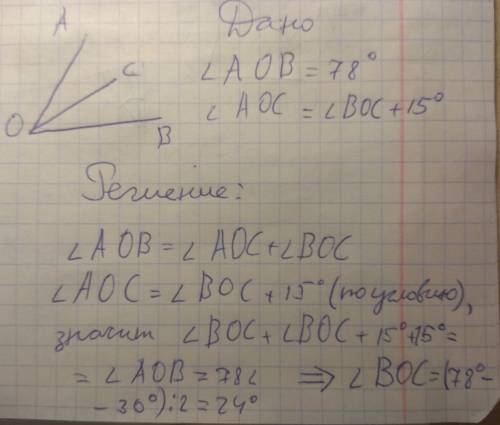 Дано
A
C
O
B
∠AOB = 78°
∠AOC = ∠BOC + 15°
Решение:
∠AOB = ∠AOC + ∠BOC
∠AOC = ∠BOC + 15° (по условию),
значит ∠BOC + ∠BOC + 15° + 15° =
= ∠AOB = 78∠ ⇒ ∠BOC = (78° -
- 30°) : 2 = 24°